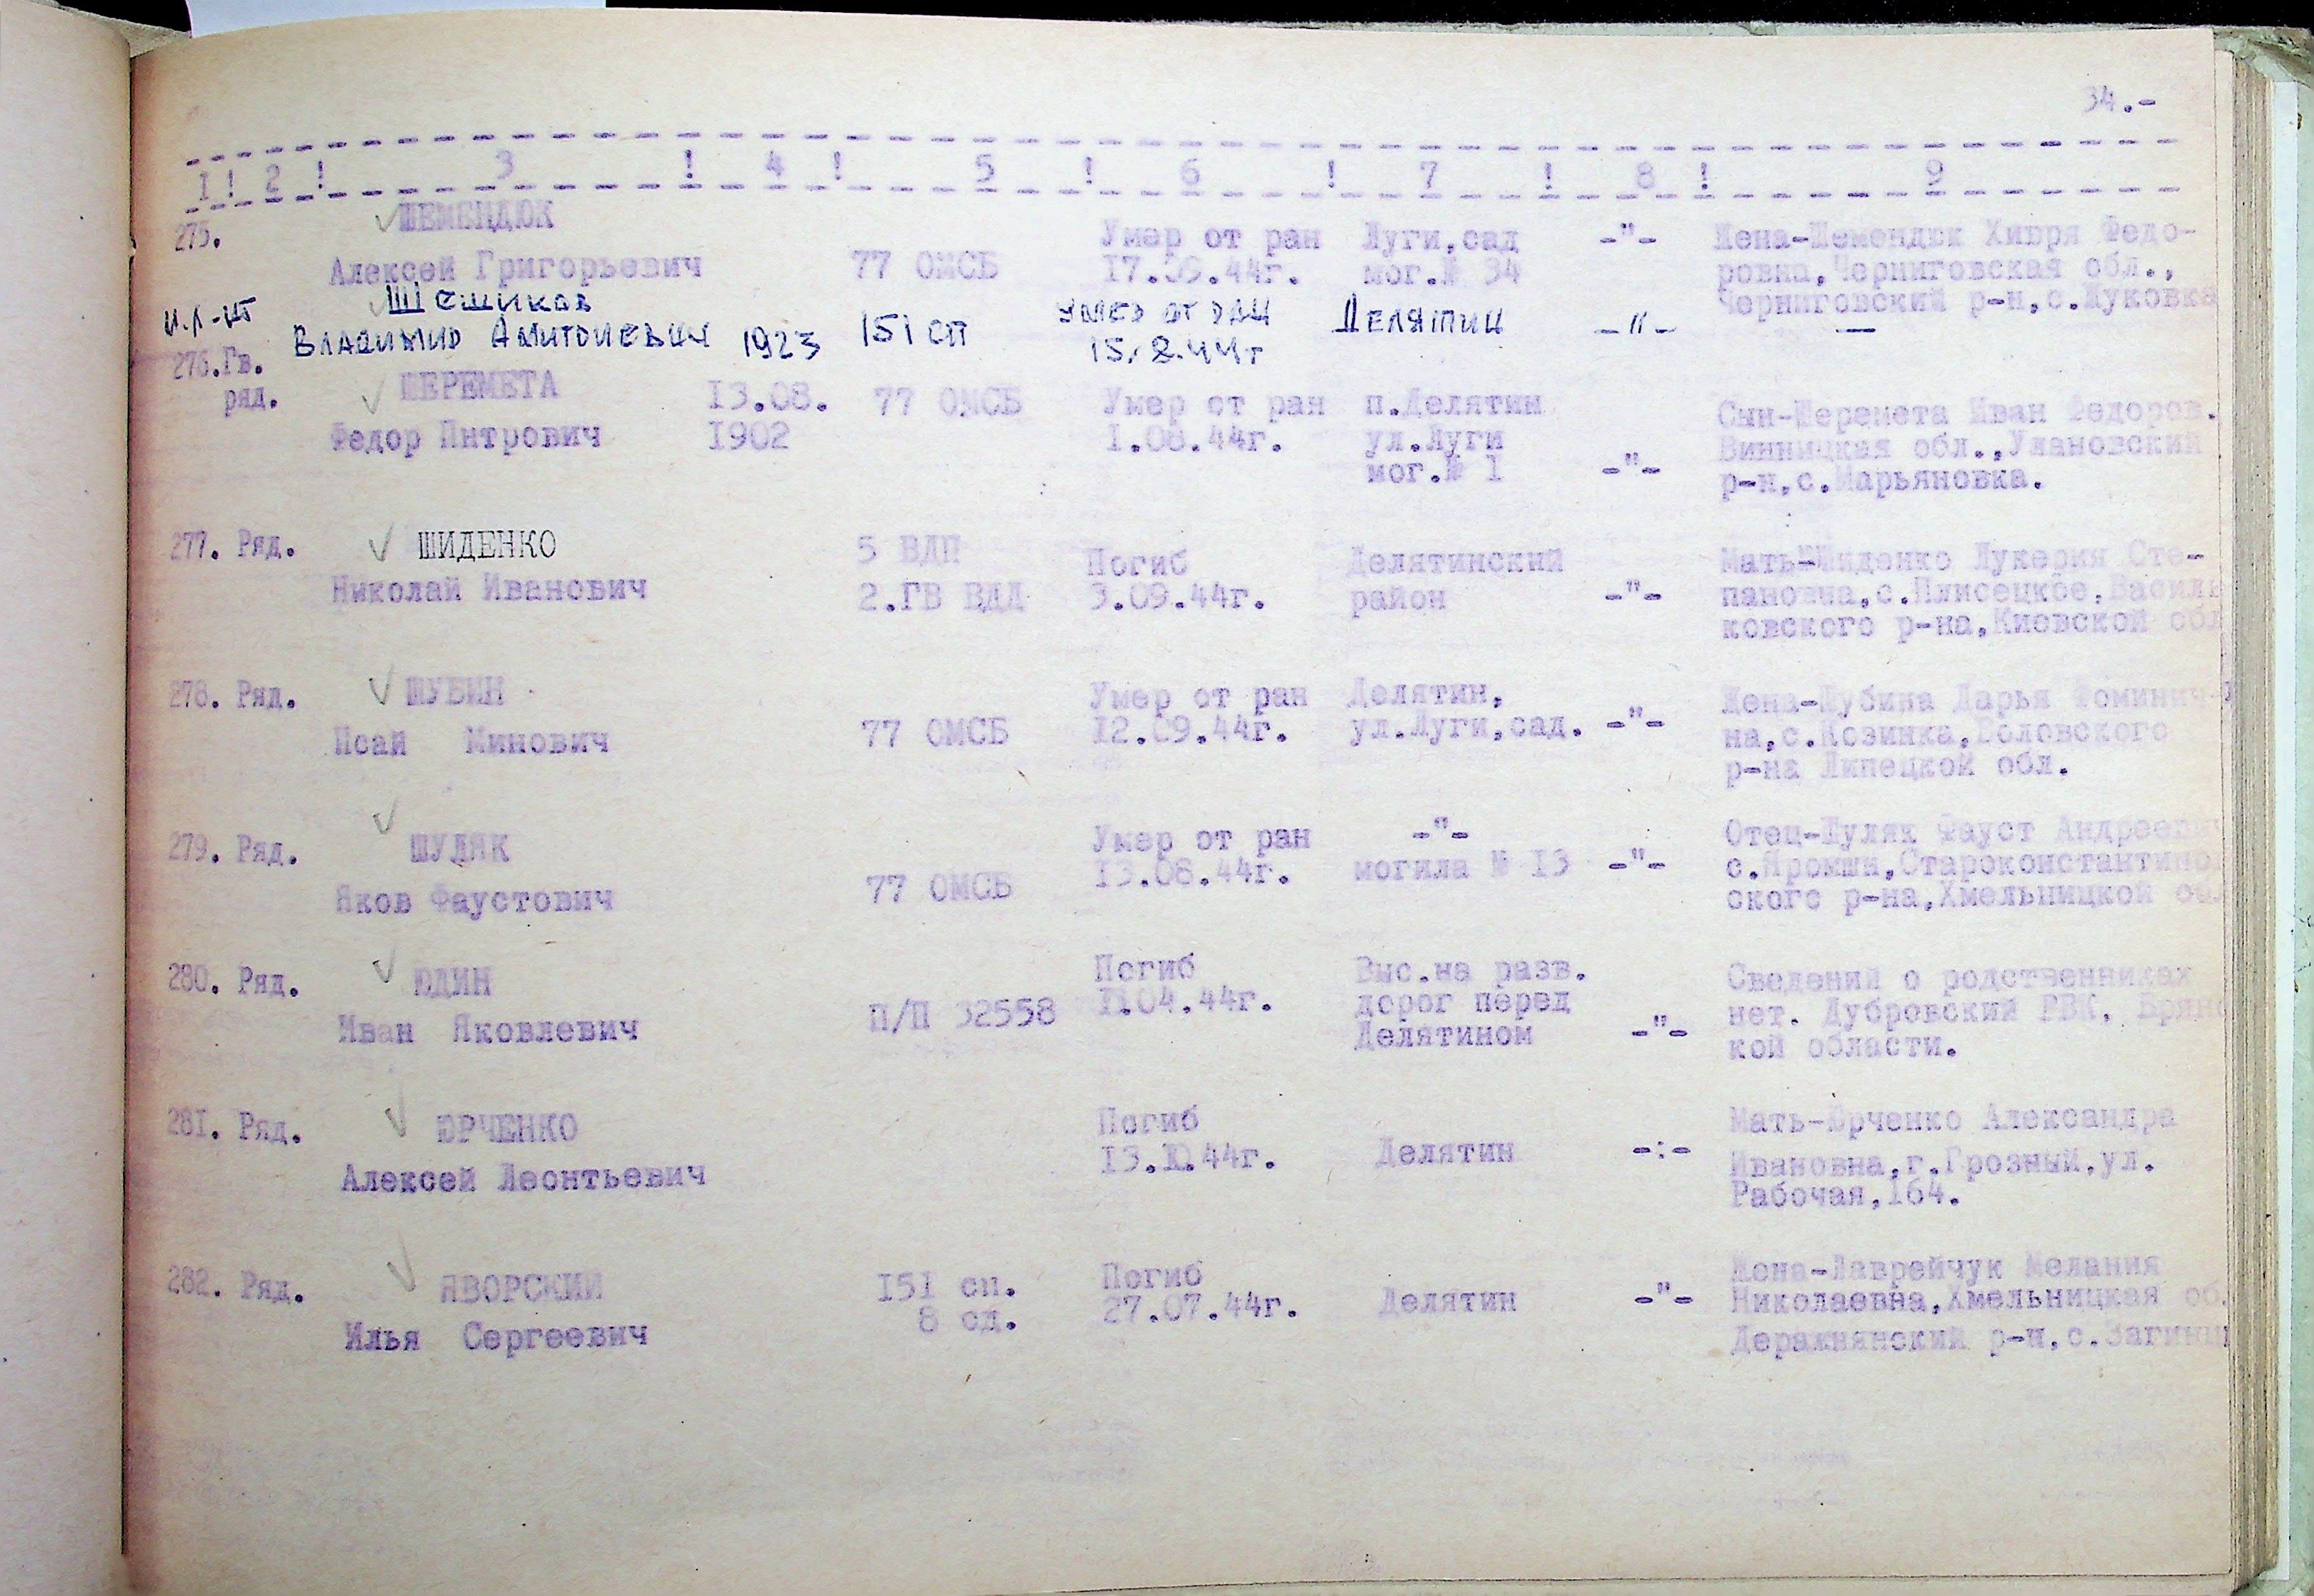 34.-
I ! 2 ! 3 ! 4 ! 5 ! 6 ! 7 ! 8 ! 9
275. ШЕМЕНДЮК Умер от ран Луги,сад -"- Жена-Шемендюк Хивря Федо-
Алексей Григорьевич 77 ОМСБ 17.09.44г. мог.№ 34 ровна,Черниговская обл.,
Черниговский р-н,с.Жуковка
Шешиков
Владимир 1923 151 сп умер от ран Делятин -"- —
15.8.44г
276.Гв. ШЕРЕМЕТА 13.08. 77 ОМСБ Умер от ран п.Делятин Сын-Шеремета Иван Федоров.
ряд. Федор Питрович 1902 1.08.44г. ул.Луги Винницкая обл.,Улановский
мог.№ 1 -"- р-н,с.Марьяновка.
277. Ряд. ШИДЕНКО 5 ВДП Погиб Делятинский Мать-Шиденко Лукерия Сте-
Николай Иванович 2.ГВ ВДД 3.09.44г. район -"- пановна,с.Плисецкое,Василь
ковского р-на,Киевской обл
278. Ряд. ШУБИН Умер от ран Делятин, Жена-Шубина Дарья Фоминич-
Исай Минович 77 ОМСБ 12.09.44г. ул.Луги,сад. -"- на,с.Козинка,Воловского
р-на Липецкой обл.
279. Ряд. ШУЛЯК Умер от ран -"- Отец-Шуляк Фауст Андрееви
Яков Фаустович 77 ОМСБ 13.08.44г. могила № 13 -"- с.Яромши,Староконстантино
ского р-на,Хмельницкой обл
280. Ряд. ЮДИН Погиб Выс.на разв. Сведений о родственниках
Иван Яковлевич П/П 32558 11.04.44г. дорог перед нет. Дубровский РВК, Брянс
Делятином -"- кой области.
281. Ряд. ЮРЧЕНКО Погиб Мать-Юрченко Александра
Алексей Леонтьевич 13.10.44г. Делятин -:- Ивановна,г.Грозный,ул.
Рабочая,164.
282. Ряд. ЯВОРСКИЙ 151 сп. Погиб Жона-Лаврейчук Мелания
Илья Сергеевич 8 сд. 27.07.44г. Делятин -"- Николаевна,Хмельницкая об.
Деражнянский р-н,с.Загинц